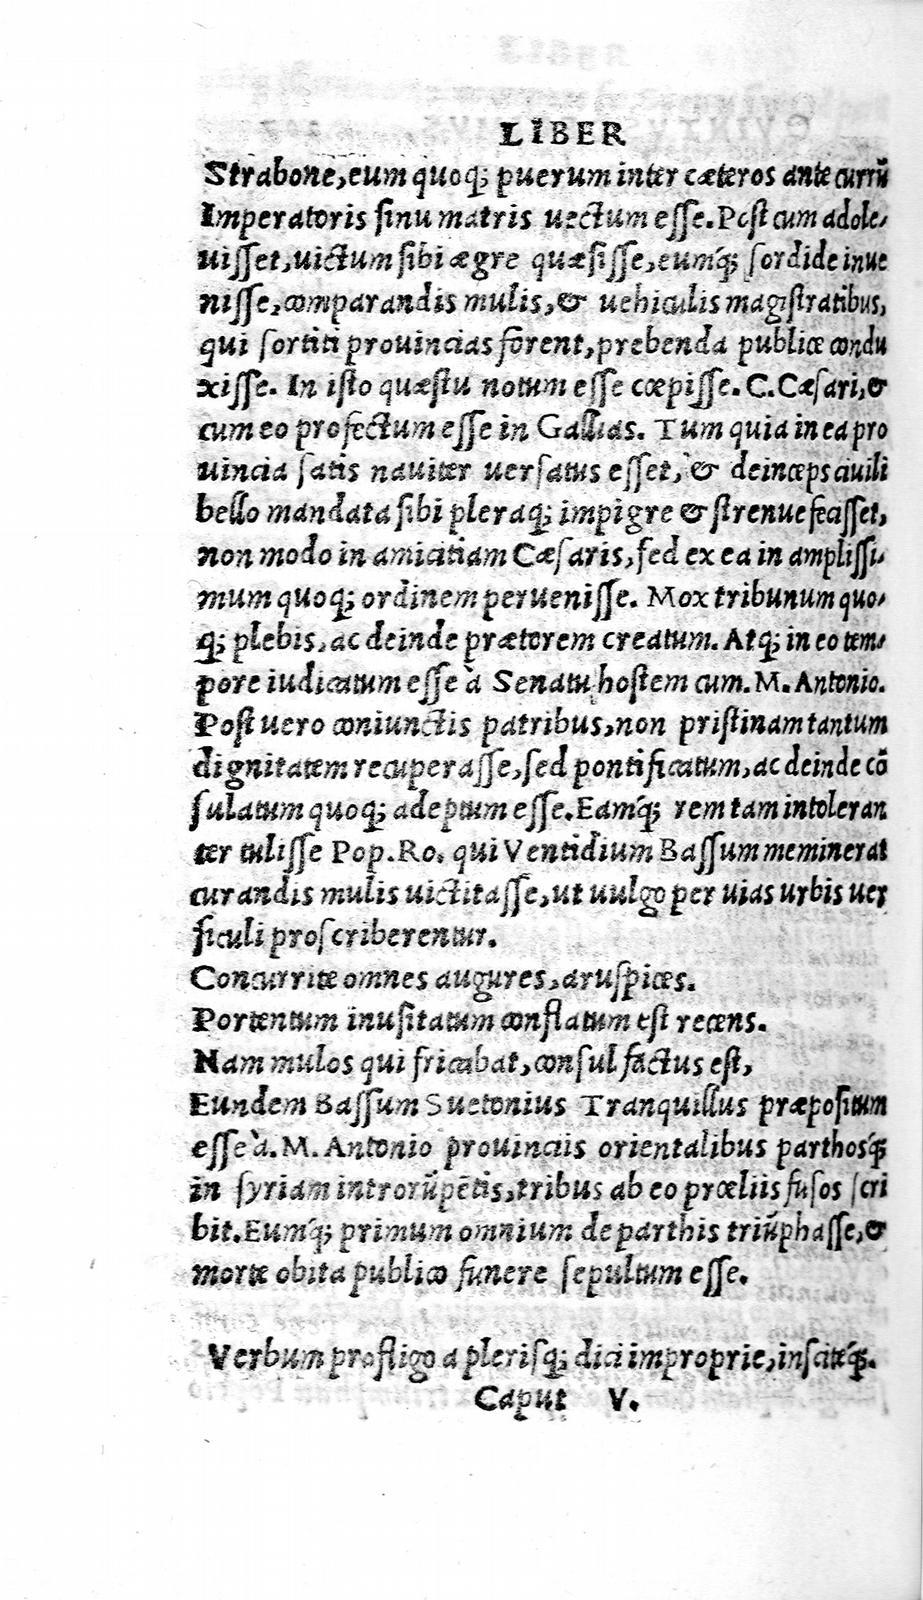 LIBER
Strabone, eum quoq; puerum inter cæteros ante currũ
Imperatoris sinu matris uectum esse. Post cum adole-
uisset, uictum sibi ægre quæsisse, eumq́; sordide inue
nisse, comparandis mulis, & uehiculis magistratibus,
qui sortiti prouincias forent, prebenda publice condu
xisse. In isto quæstu notum esse cœpisse. C. Cæsari, &
cum eo profectum esse in Gallias. Tum quia in ea pro
uincia satis nauiter uersatus esset, & deinceps ciuili
bello mandata sibi pleraq; impigre & strenue fecisset,
non modo in amicitiam Cæsaris, sed ex ea in amplissi-
mum quoq; ordinem peruenisse. Mox tribunum quo-
q; plebis, ac deinde prætorem creatum. Atq; in eo tem-
pore iudicatum esse à Senatu hostem cum. M. Antonio.
Post uero coniunctis patribus, non pristinam tantum
dignitatem recuperasse, sed pontificatum, ac deinde cõ
sulatum quoq; adeptum esse. Eamq́; rem tam intoleran
ter tulisse Pop. Ro. qui Ventidium Bassum meminerat
curandis mulis uictitasse, ut uulgo per uias urbis uer
siculi proscriberentur.
Concurrite omnes augures, aruspices.
Portentum inusitatum conflatum est recens.
Nam mulos qui fricabat, consul factus est,
Eundem Bassum Suetonius Tranquillus præpositum
esse à. M. Antonio prouinciis orientalibus parthosq́;
in syriam introrũpẽtis, tribus ab eo prœliis fusos scri
bit. Eumq́; primum omnium de parthis triũphasse, &
morte obita publico funere sepultum esse.
Verbum profligo a plerisq; dici improprie, insciteq́;.
Caput V.